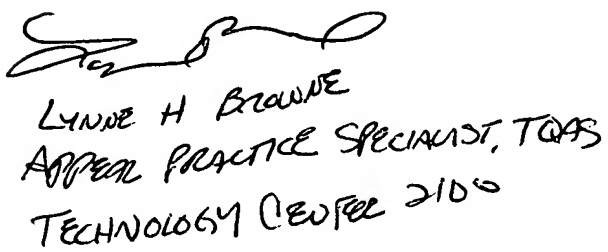 LYNNE H BROWNE
APPEAL PRACTICE SPECIALIST, TQAS
TECHNOLOGY CENTER 2100